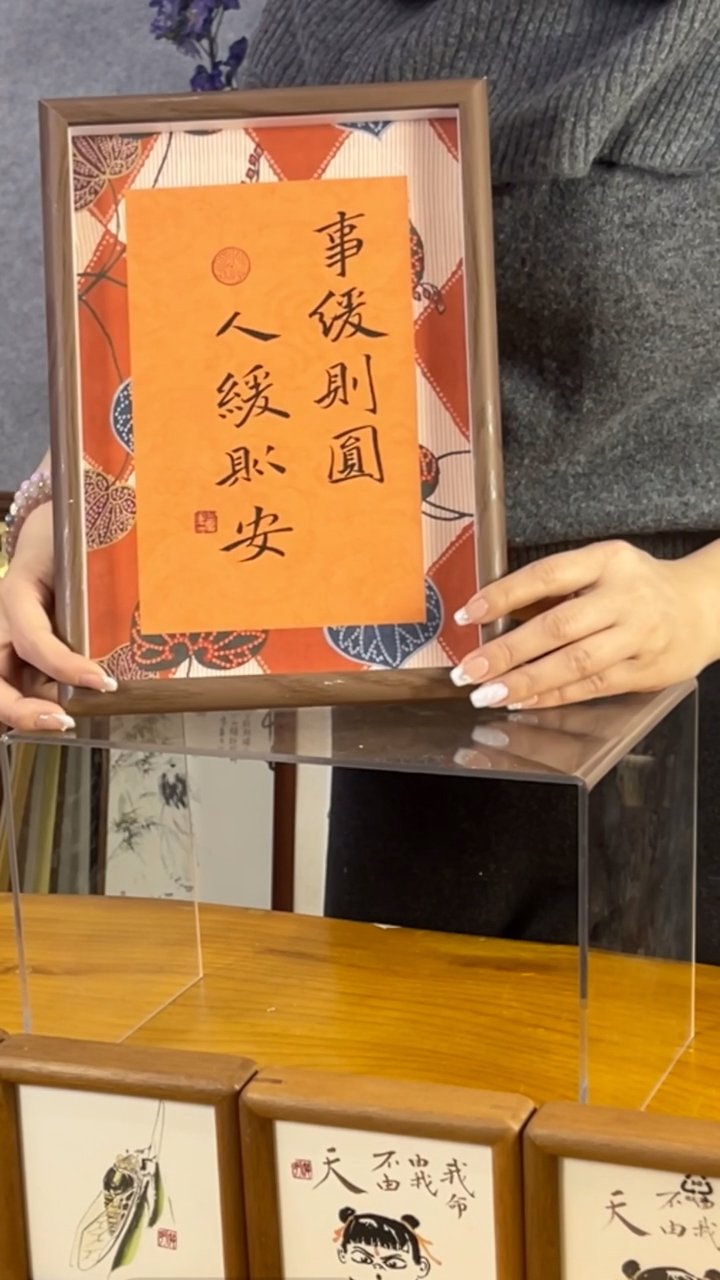 事緩則圓
人緩則安
我命
由我
不由
天
不由
天